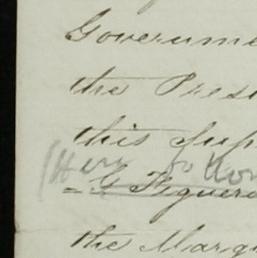 Governme
the Presi
this Sup
(Here follow
- G Figuero
the Marqu